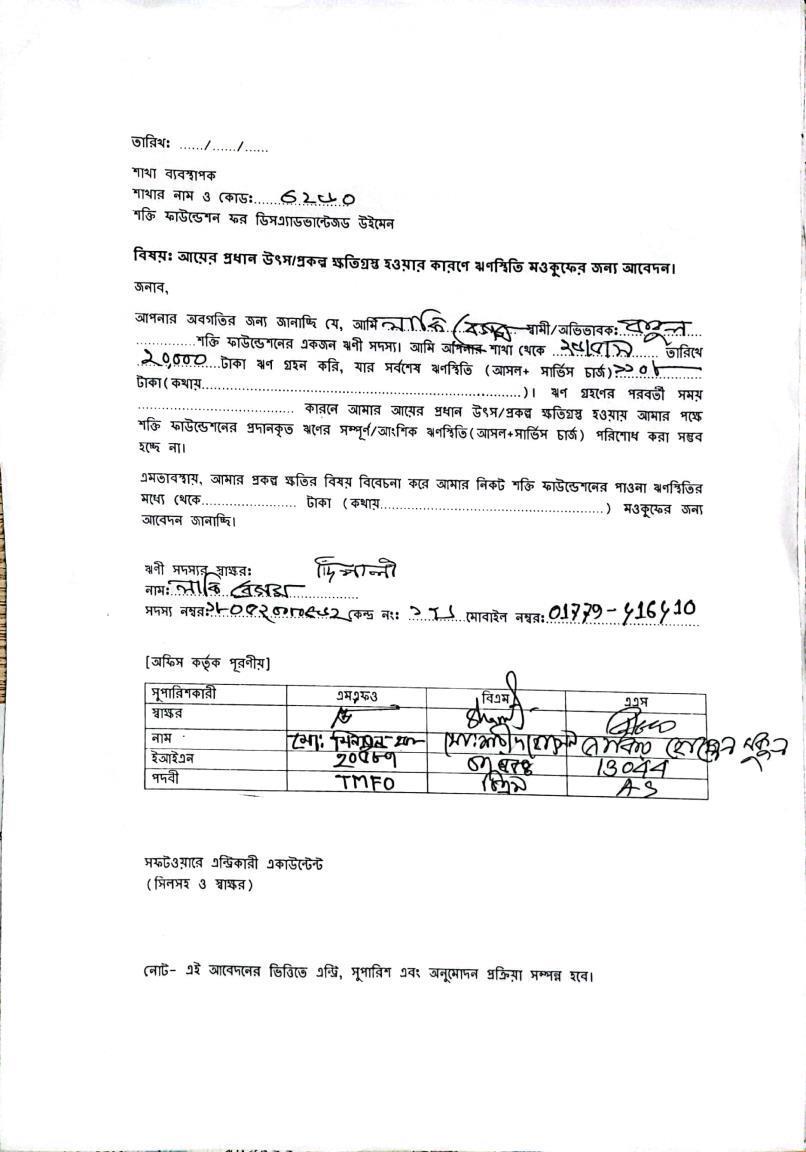 তারিখ: ....../....../......
শাখা ব্যবস্থাপক
শাখার নাম ও কোড:
শক্তি ফাউন্ডেশন ফর ডিসএ্যাডভান্টেজড উইমেন
বিষয়: আয়ের প্রধান উৎস/প্রকল্প ক্ষতিগ্রস্থ হওয়ার কারণে ঋণস্থিতি মওকুফের জন্য আবেদন।
জনাব,
আপনার অবগতির জন্য জানাচ্ছি যে, আমি লাকি বেগম স্বামী/অভিভাবক:
শক্তি ফাউন্ডেশনের একজন ঋণী সদস্য। আমি আপনার শাখা থেকে তারিখে
20,000 টাকা ঋণ গ্রহন করি, যার সর্বশেষ ঋণস্থিতি (আসল+ সার্ভিস চার্জ)
টাকা(কথায়..........................................................)। ঋণ গ্রহণের পরবর্তী সময়
............................ কারনে আমার আয়ের প্রধান উৎস/প্রকল্প ক্ষতিগ্রস্থ হওয়ায় আমার পক্ষে
শক্তি ফাউন্ডেশনের প্রদানকৃত ঋণের সম্পূর্ণ/আংশিক ঋণস্থিতি(আসল+সার্ভিস চার্জ) পরিশোধ করা সম্ভব
হচ্ছে না।
এমতাবস্থায়, আমার প্রকল্প ক্ষতির বিষয় বিবেচনা করে আমার নিকট শক্তি ফাউন্ডেশনের পাওনা ঋণস্থিতির
মধ্যে থেকে..................... টাকা (কথায়..................................................) মওকুফের জন্য
আবেদন জানাচ্ছি।
ঋণী সদস্যর স্বাক্ষর: দিপালী
নাম: লাকি বেগম
সদস্য নম্বর: কেন্দ্র নং: মোবাইল নম্বর: 01779-416410
[অফিস কর্তৃক পূরনীয়]
সুপারিশকারী এমএফও বিএম এএস
স্বাক্ষর
নাম মো:
ইআইএন 13044
পদবী TMFO বিএম AS
সফটওয়ারে এন্ট্রিকারী একাউন্টেন্ট
(সিলসহ ও স্বাক্ষর)
নোট- এই আবেদনের ভিত্তিতে এন্ট্রি, সুপারিশ এবং অনুমোদন প্রক্রিয়া সম্পন্ন হবে।